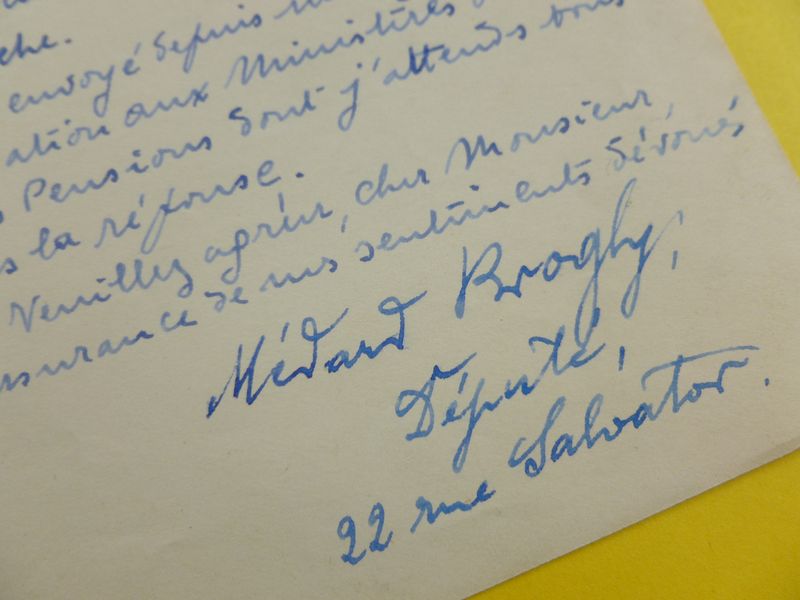 che.
envoyé depuis
ation aux Ministères
Pensions dont j'attends tous
la réponse.
Veuillez agréer, cher Monsieur,
ssurance de mes sentiments dévoués
Médard Brogly,
Député,
22 rue Salvator.